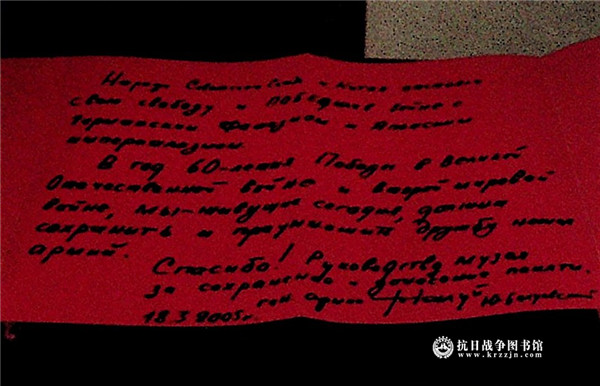 Народы Советский и Китая
свою свободу и победили в войне с
Германским фашизмом и Японским
империализмом.
В год 60-летия Победы в Великой
Отечественной войне и второй мировой
войне, мы - живущие сегодня, должны
сохранить и преумножить дружбу наших
армий.
Спасибо! Руководству музея
за сохранение и памяти.
ген
18.3.2005г.
抗日战争图书馆
www.krzzjn.com